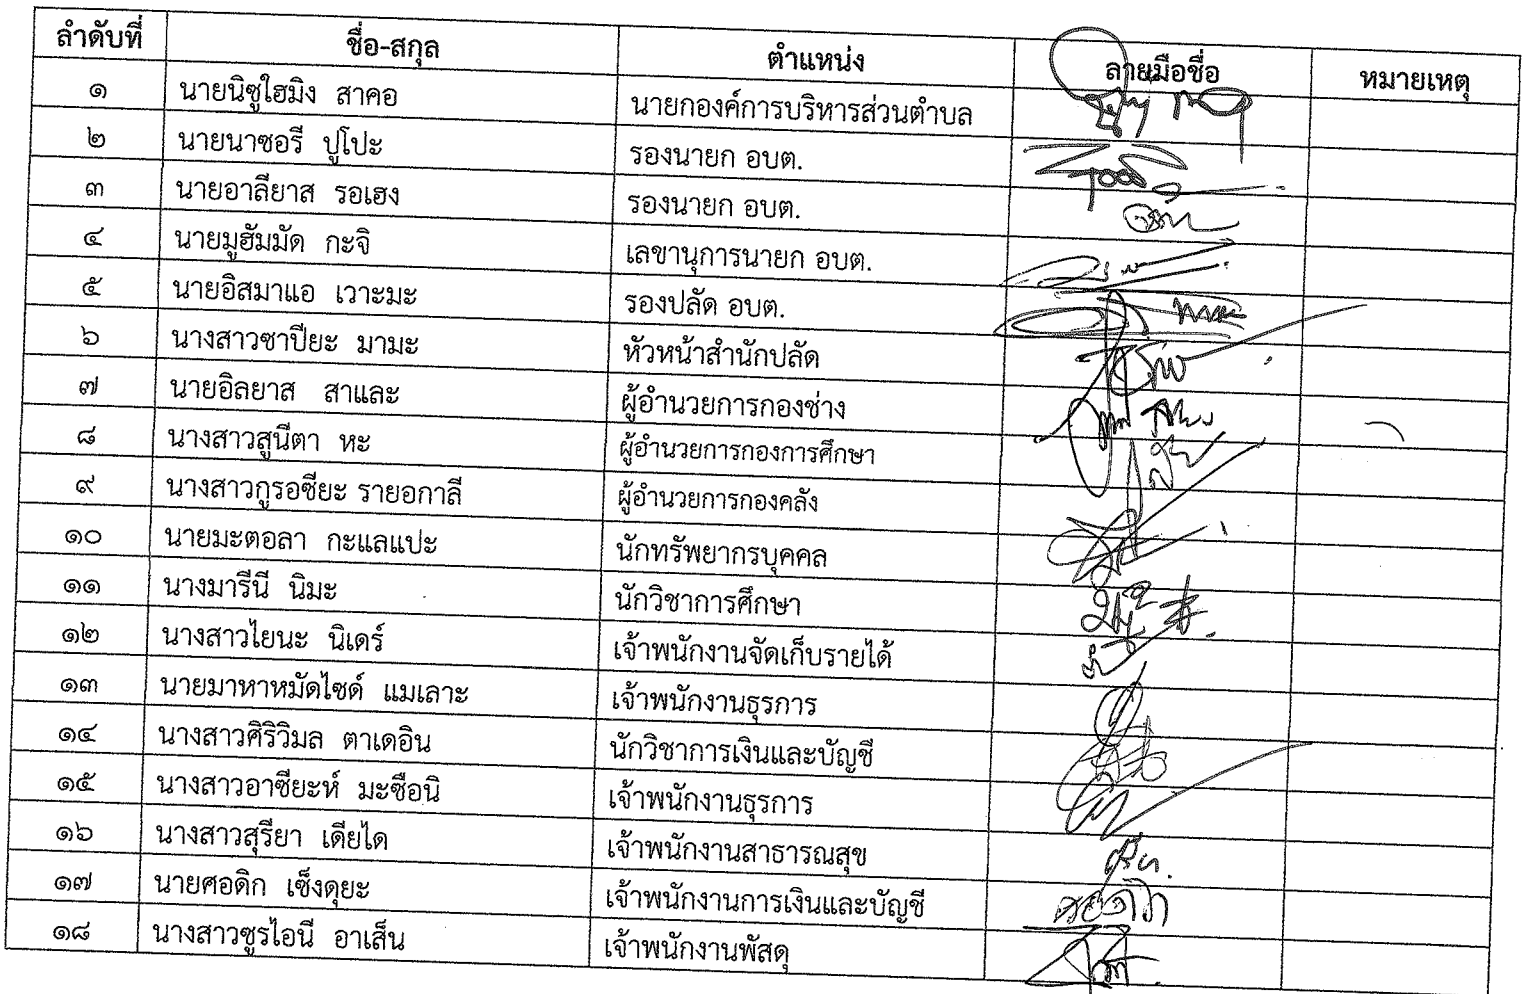 ลำดับที่ ชื่อ-สกุล ตำแหน่ง ลายมือชื่อ หมายเหตุ
๑ นายนิซูไฮมิง สาคอ นายกองค์การบริหารส่วนตำบล
๒ นายนาซอรี ปูโปะ รองนายก อบต.
๓ นายอาลียาส รอเฮง รองนายก อบต.
๔ นายมูฮัมมัด กะจิ เลขานุการนายก อบต.
๕ นายอิสมาแอ เวาะมะ รองปลัด อบต.
๖ นางสาวซาปียะ มามะ หัวหน้าสำนักปลัด
๗ นายอิลยาส สาและ ผู้อำนวยการกองช่าง
๘ นางสาวสูนีตา หะ ผู้อำนวยการกองการศึกษา
๙ นางสาวกูรอซียะ รายอกาลี ผู้อำนวยการกองคลัง
๑๐ นายมะตอลา กะแลแปะ นักทรัพยากรบุคคล
๑๑ นางมารีนี นิมะ นักวิชาการศึกษา
๑๒ นางสาวไยนะ นิเดร์ เจ้าพนักงานจัดเก็บรายได้
๑๓ นายมาหาหมัดไซด์ แมเลาะ เจ้าพนักงานธุรการ
๑๔ นางสาวศิริวิมล ตาเดอิน นักวิชาการเงินและบัญชี
๑๕ นางสาวอาซียะห์ มะซือนิ เจ้าพนักงานธุรการ
๑๖ นางสาวสุรียา เดียได เจ้าพนักงานสาธารณสุข
๑๗ นายศอดิก เซ็งดุยะ เจ้าพนักงานการเงินและบัญชี
๑๘ นางสาวซูรไอนี อาเส็น เจ้าพนักงานพัสดุ